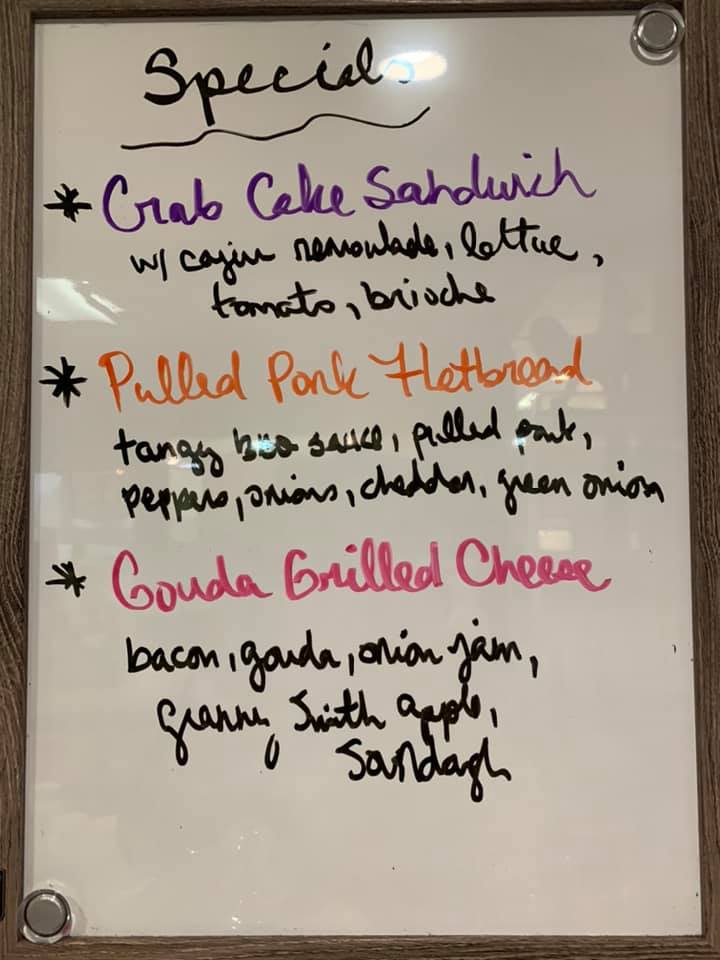 Specials
* Crab Cake Sandwich
w/ cajun remoulade, lettuce,
tomato, brioche
* Pulled Pork Flatbread
tangy bbq sauce, pulled pork,
peppers, onions, cheddar, green onion
* Gouda Grilled Cheese
bacon, gouda, onion jam,
granny Smith apple,
Sourdough